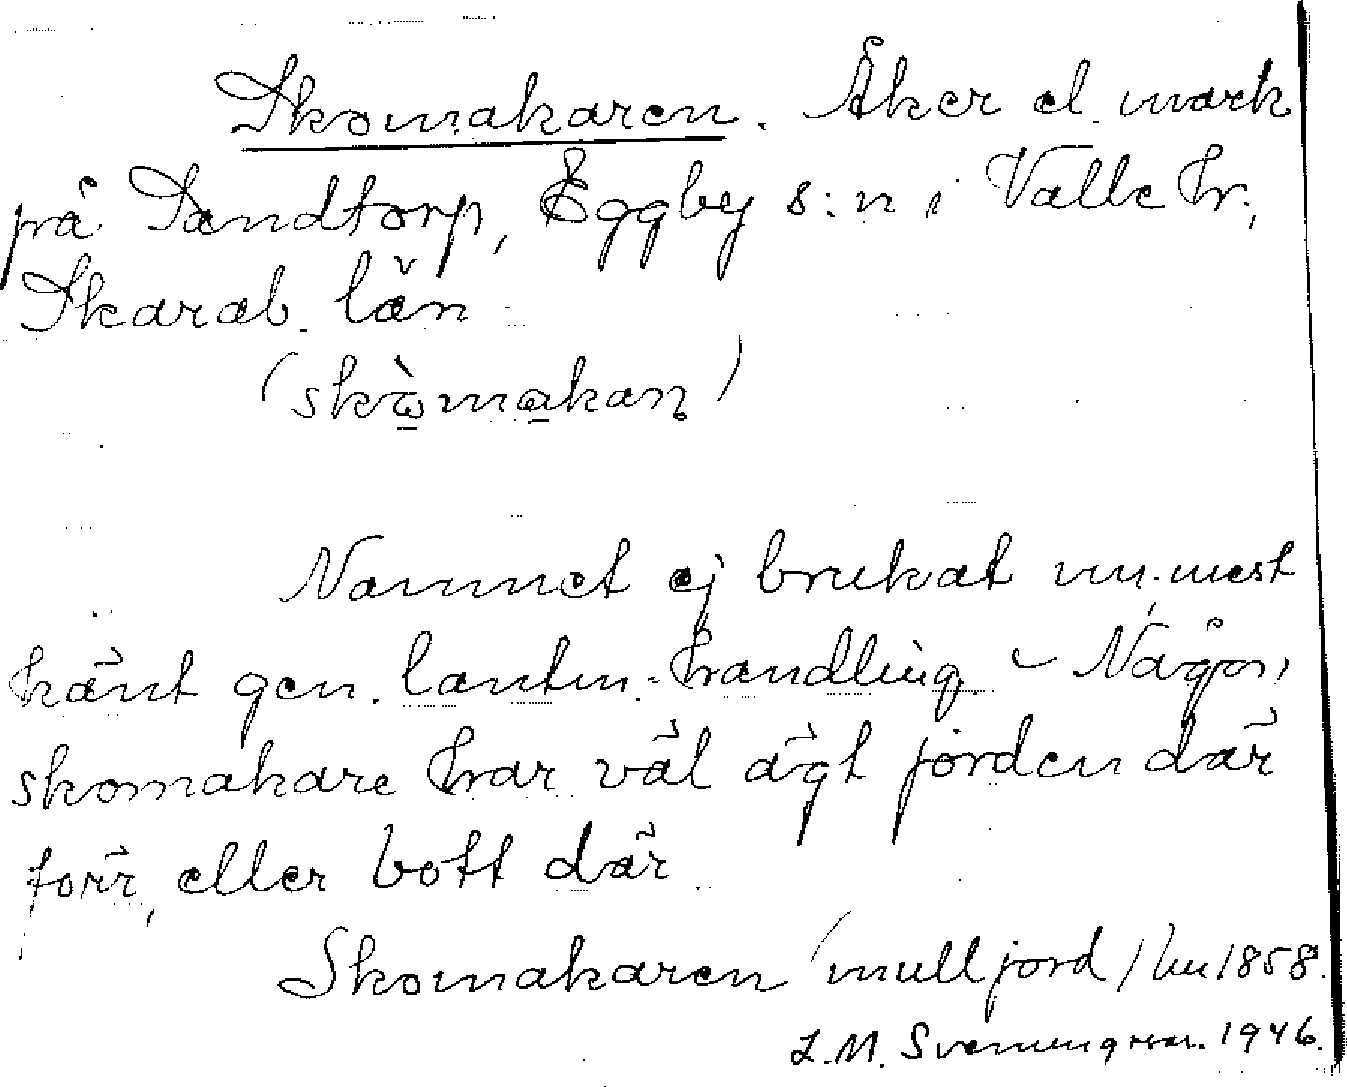 Skomakaren. Åker el. mark
på Sandtorp, Eggby s:n i Valle hr,
Skarab. län
(skòmakan)
Namnet ej brukat nu. mest
känt gen. lantm.-handling – Någon
skomakare har väl ägt jorden där
förr, eller bott där
Skomakaren (mulljord) lm 1858.
L.M. Svenungsson. 1946.